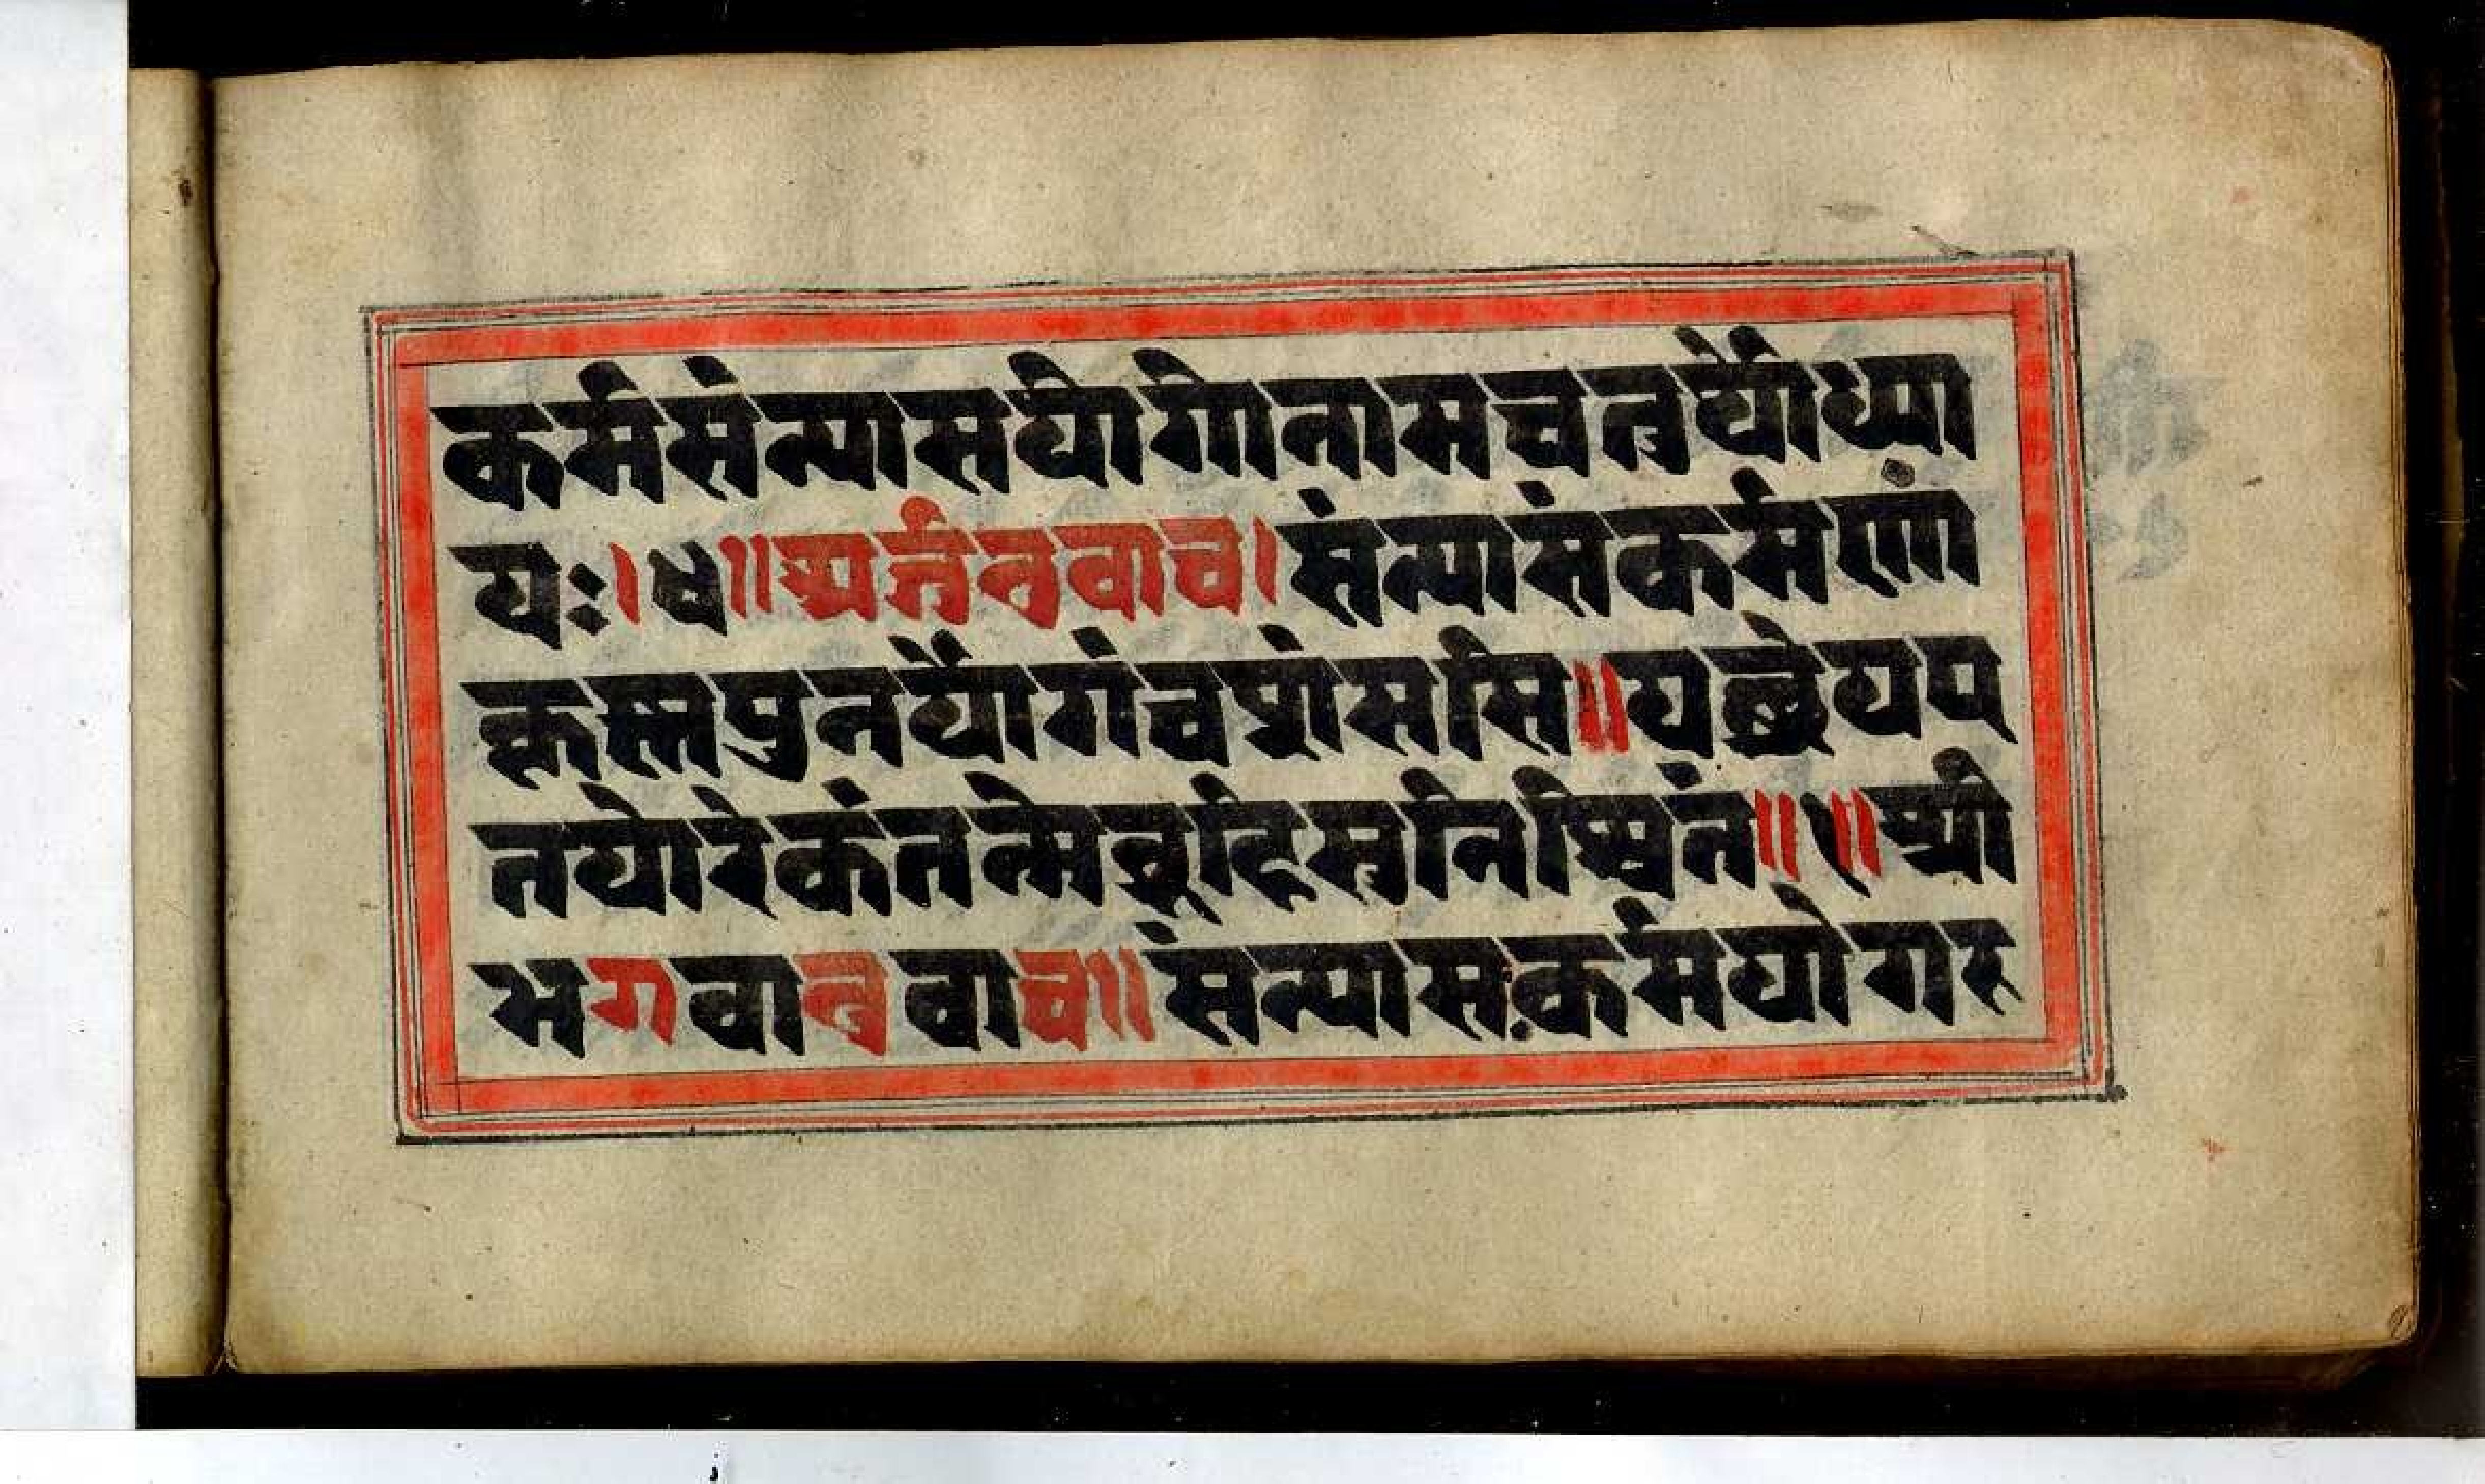 कर्मसंन्यासयोगोनामचतुर्थोध्या
यः।४॥अर्जुनउवाच।संन्यासंकर्मणां
कृष्णपुनर्योगंचशंससि॥यछ्रेयए
तयोरेकंतन्मेब्रूहिसुनिश्चितं॥१॥श्री
भगवानुवाच॥संन्यासःकर्मयोगश्